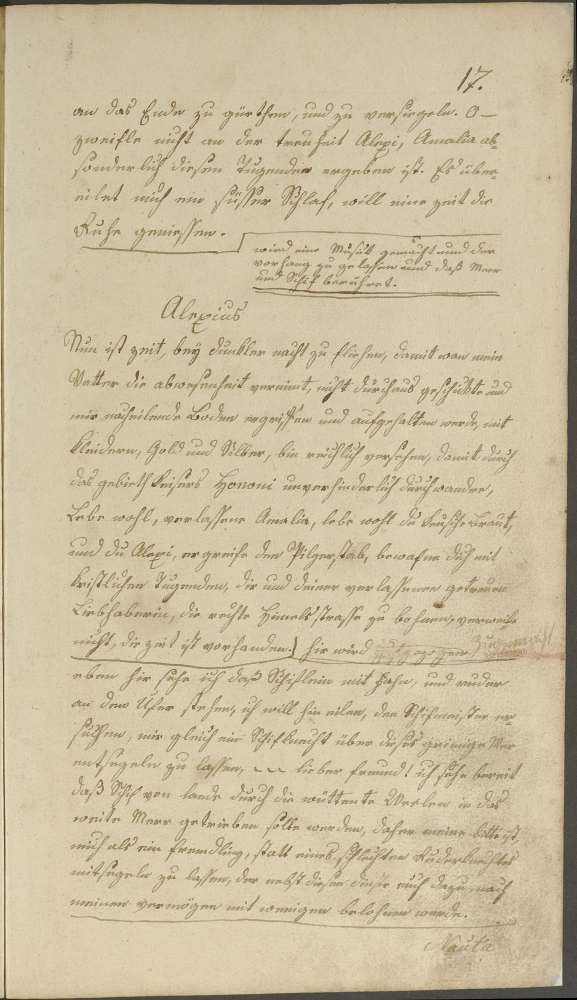 17.
an das Ende zu gürthen, und zu versiegeln. O –
zweifle nicht an der treuheit Alexi, Amalia ab-
sonderlich diesen Tugenden ergeben ist. Es über-
eilet mich ein süsser Schlaf, will eine zeit die
Ruhe geniessen.
wird eine Musik gemacht und der
vorhang zu gelassen und daß Meer
und Schif berühret.
Alexius
Nun ist zeit, bey dunkler nacht zu fliehen, damit wan mein
Vatter die abwesenheit vernimt, nicht durchaus geschickte und
mir nacheilende Boden ergriffen und aufgehalten werde, mit
Kleidern, Gold und Silber, bin reichlich versehen, damit durch
das gebieth Keisers Honori unverhinderlich durchwandere,
Lebe wohl, verlassene Amalia, lebe wohl du keusche Braut,
und du Alexi, ergreife den Pilgerstab, bewafne dich mit
kristlichen Tugenden, die und deiner verlassenen getreuen
Liebhaberin, die rechte Himelsstrasse zu bahnen, verweile
nicht, die zeit ist vorhanden.) hir wird gezogen
eben hir sehe ich daß Schiflein mit fahn, und ruder
an dem Ufer stehen, ich will hin eilen, den Schifmeister er-
suchen, mir gleich ein Schifknecht über dises grimige Mer
entsegeln zu lassen, – – lieber freund! ich sehe bereit
daß Schif von lande durch die wüttente Werlen in das
weite Merr getrieben solle werden, daher meine bitte ist
mich als ein fremdling, statt eines schlechten Ruderknechtes
mitsegeln zu lassen, der nebst diesen dinste euch dazu, nach
meinen vermögen mit wenigen belohnen werde.
Nauta